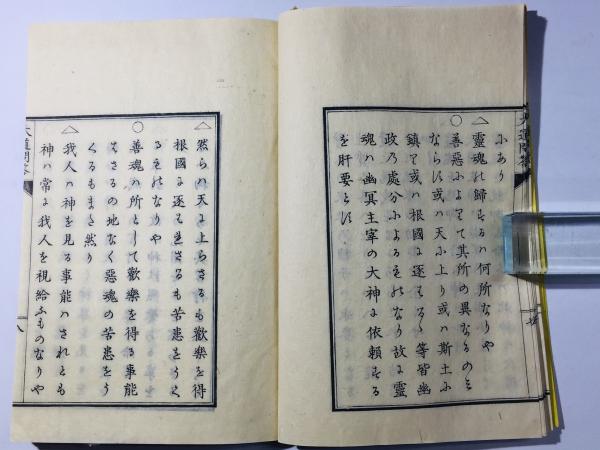 ふあり
△靈魂の歸するハ何所なりや
○善惡によりて其所の異なるのみ
ならす或ハ天に上り或ハ斯土に
鎮り或ハ根國に逐はるゝ等皆幽
政乃處分によるものなり故に靈
魂ハ幽冥主宰の大神に依頼する
を肝要とす
大道問答
△然らハ天に上らさるも歡樂を得
根國に逐はれさるも苦患をうく
るものなりや
○善魂ハ所として歡樂を得る事能
はさるの地なく惡魂の苦患をう
くるもまた然り
△我人ハ神を見る事能ハされとも
神ハ常に我人を視給ふものなりや
大道問答
八